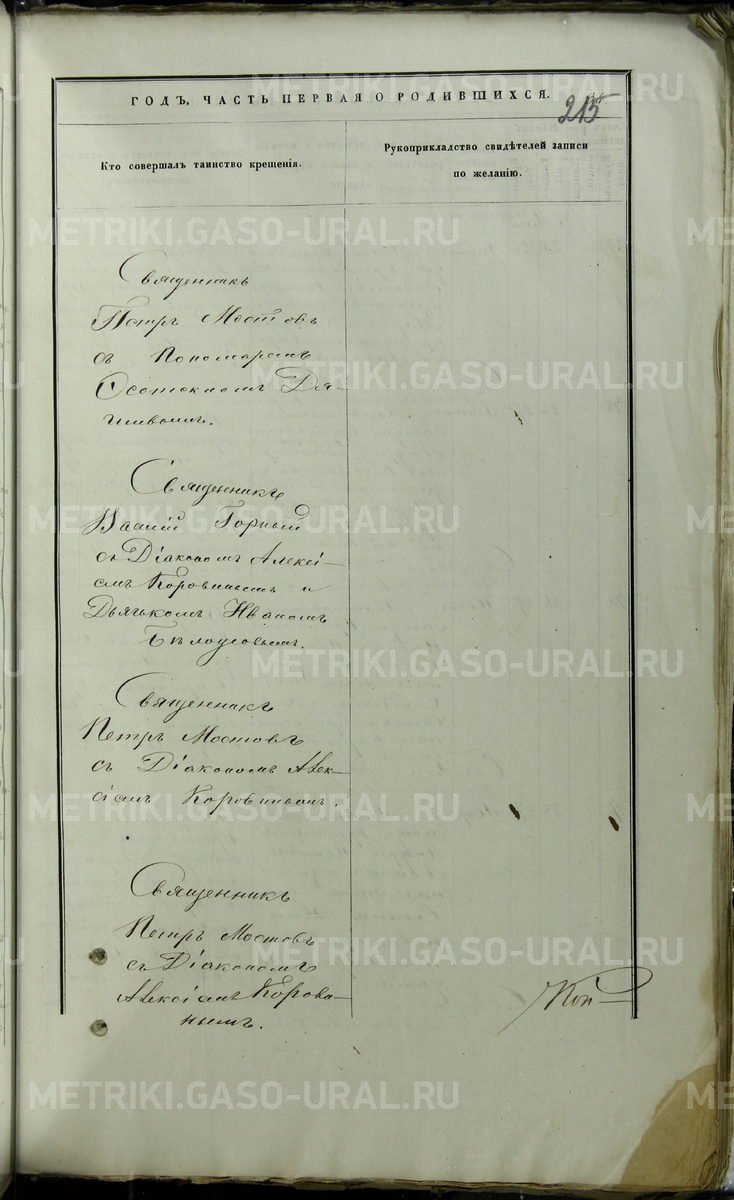 ГОДЪ, ЧАСТЬ ПЕРВАЯ О РОДИВШИХСЯ.
215
Кто совершалъ таинство крещенія.
Рукоприкладство свидѣтелей записи
по желанію.
Священникъ
Петръ Мостовъ
съ Пономаремъ
Священникъ
Василій Горный
съ Діакономъ Алексі-
емъ Коровинымъ и
Дьячкомъ Иваномъ
Бѣлоусовымъ.
Священникъ
Петръ Мостовъ
съ Діакономъ Алек-
сіемъ Коровинымъ.
Священникъ
Петръ Мостовъ
съ Діакономъ
Алексіемъ Корови-
нымъ.
METRIKI.GASO-URAL.RU